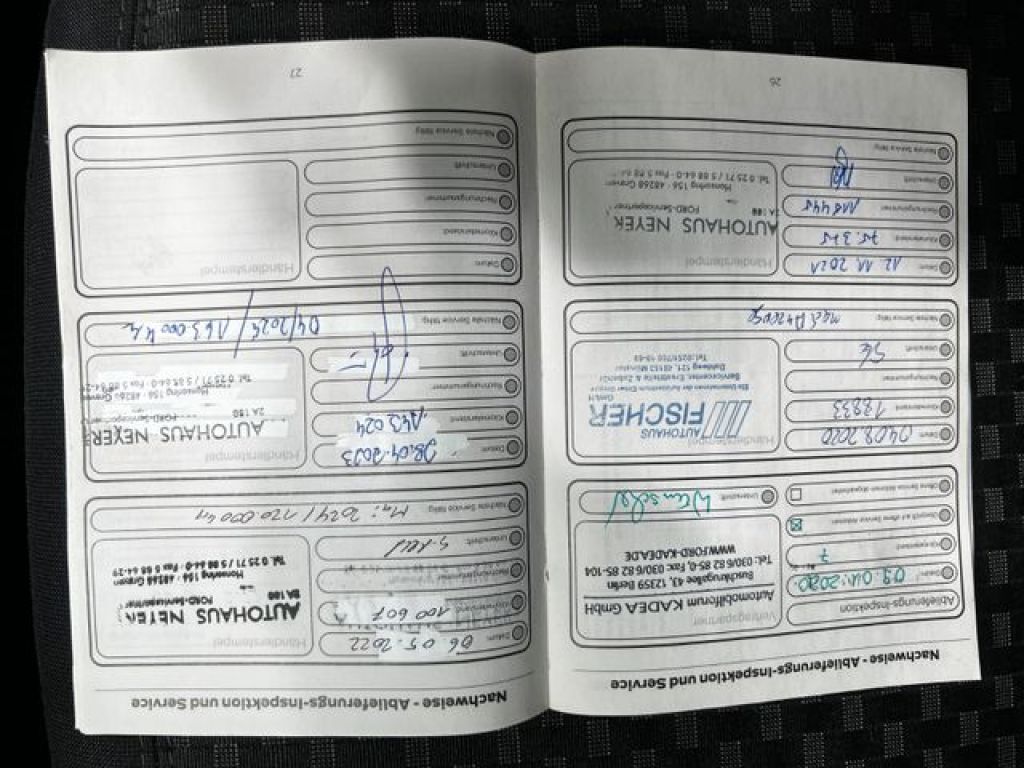 Nachweise - Ablieferungs-Inspektion und Service
Ablieferungs-Inspektion
Datum
Kilometerstand 7
Überprüft auf offene Service Aktionen
Offene Service Aktionen abgearbeitet
Vertragspartner
Automobilforum KADEA GmbH
Buschkrugallee 43, 12359 Berlin
Tel.: 030/6 82 85-0, Fax: 030/6 82 85-104
WWW.FORD-KADEA.DE
Unterschrift
Datum 04.08.2020
Kilometerstand 18833
Rechnungsnummer
Unterschrift
Nächste Service fällig
Händlerstempel
AUTOHAUS
FISCHER
GmbH
Servicecenter, Ersatzteile & Zubehör
Dahlweg 121, 48153 Münster
Datum 12.11.2021
Kilometerstand 75.315
Rechnungsnummer 118445
Unterschrift
Nächste Service fällig
Händlerstempel
AUTOHAUS NEYER
FORD-Servicepartner
Hansaring 156 · 48268 Greven
Tel. 0 25 71 / 5 88 64-0 · Fax 5 88 64
26
Nachweise - Ablieferungs-Inspektion und Service
Datum 06.05.2022
Kilometerstand 100 607
Rechnungsnummer
Unterschrift
Nächste Service fällig Mai 2024 / 120.000 km
Händlerstempel
AUTOHAUS NEYER
FORD-Servicepartner
Hansaring 156 · 48268 Greven
Tel. 0 25 71 / 5 88 64-0 · Fax 5 88 64-29
Datum 28.04.2023
Kilometerstand 143.024
Rechnungsnummer
Unterschrift
Nächste Service fällig 04/2025/ 163.000 km
Händlerstempel
AUTOHAUS NEYER
Hansaring 156 · 48268 Greven
Tel. 0 25 71 / 5 88 64-0 · Fax 5 88 64-29
Datum
Kilometerstand
Rechnungsnummer
Unterschrift
Nächste Service fällig
Händlerstempel
27